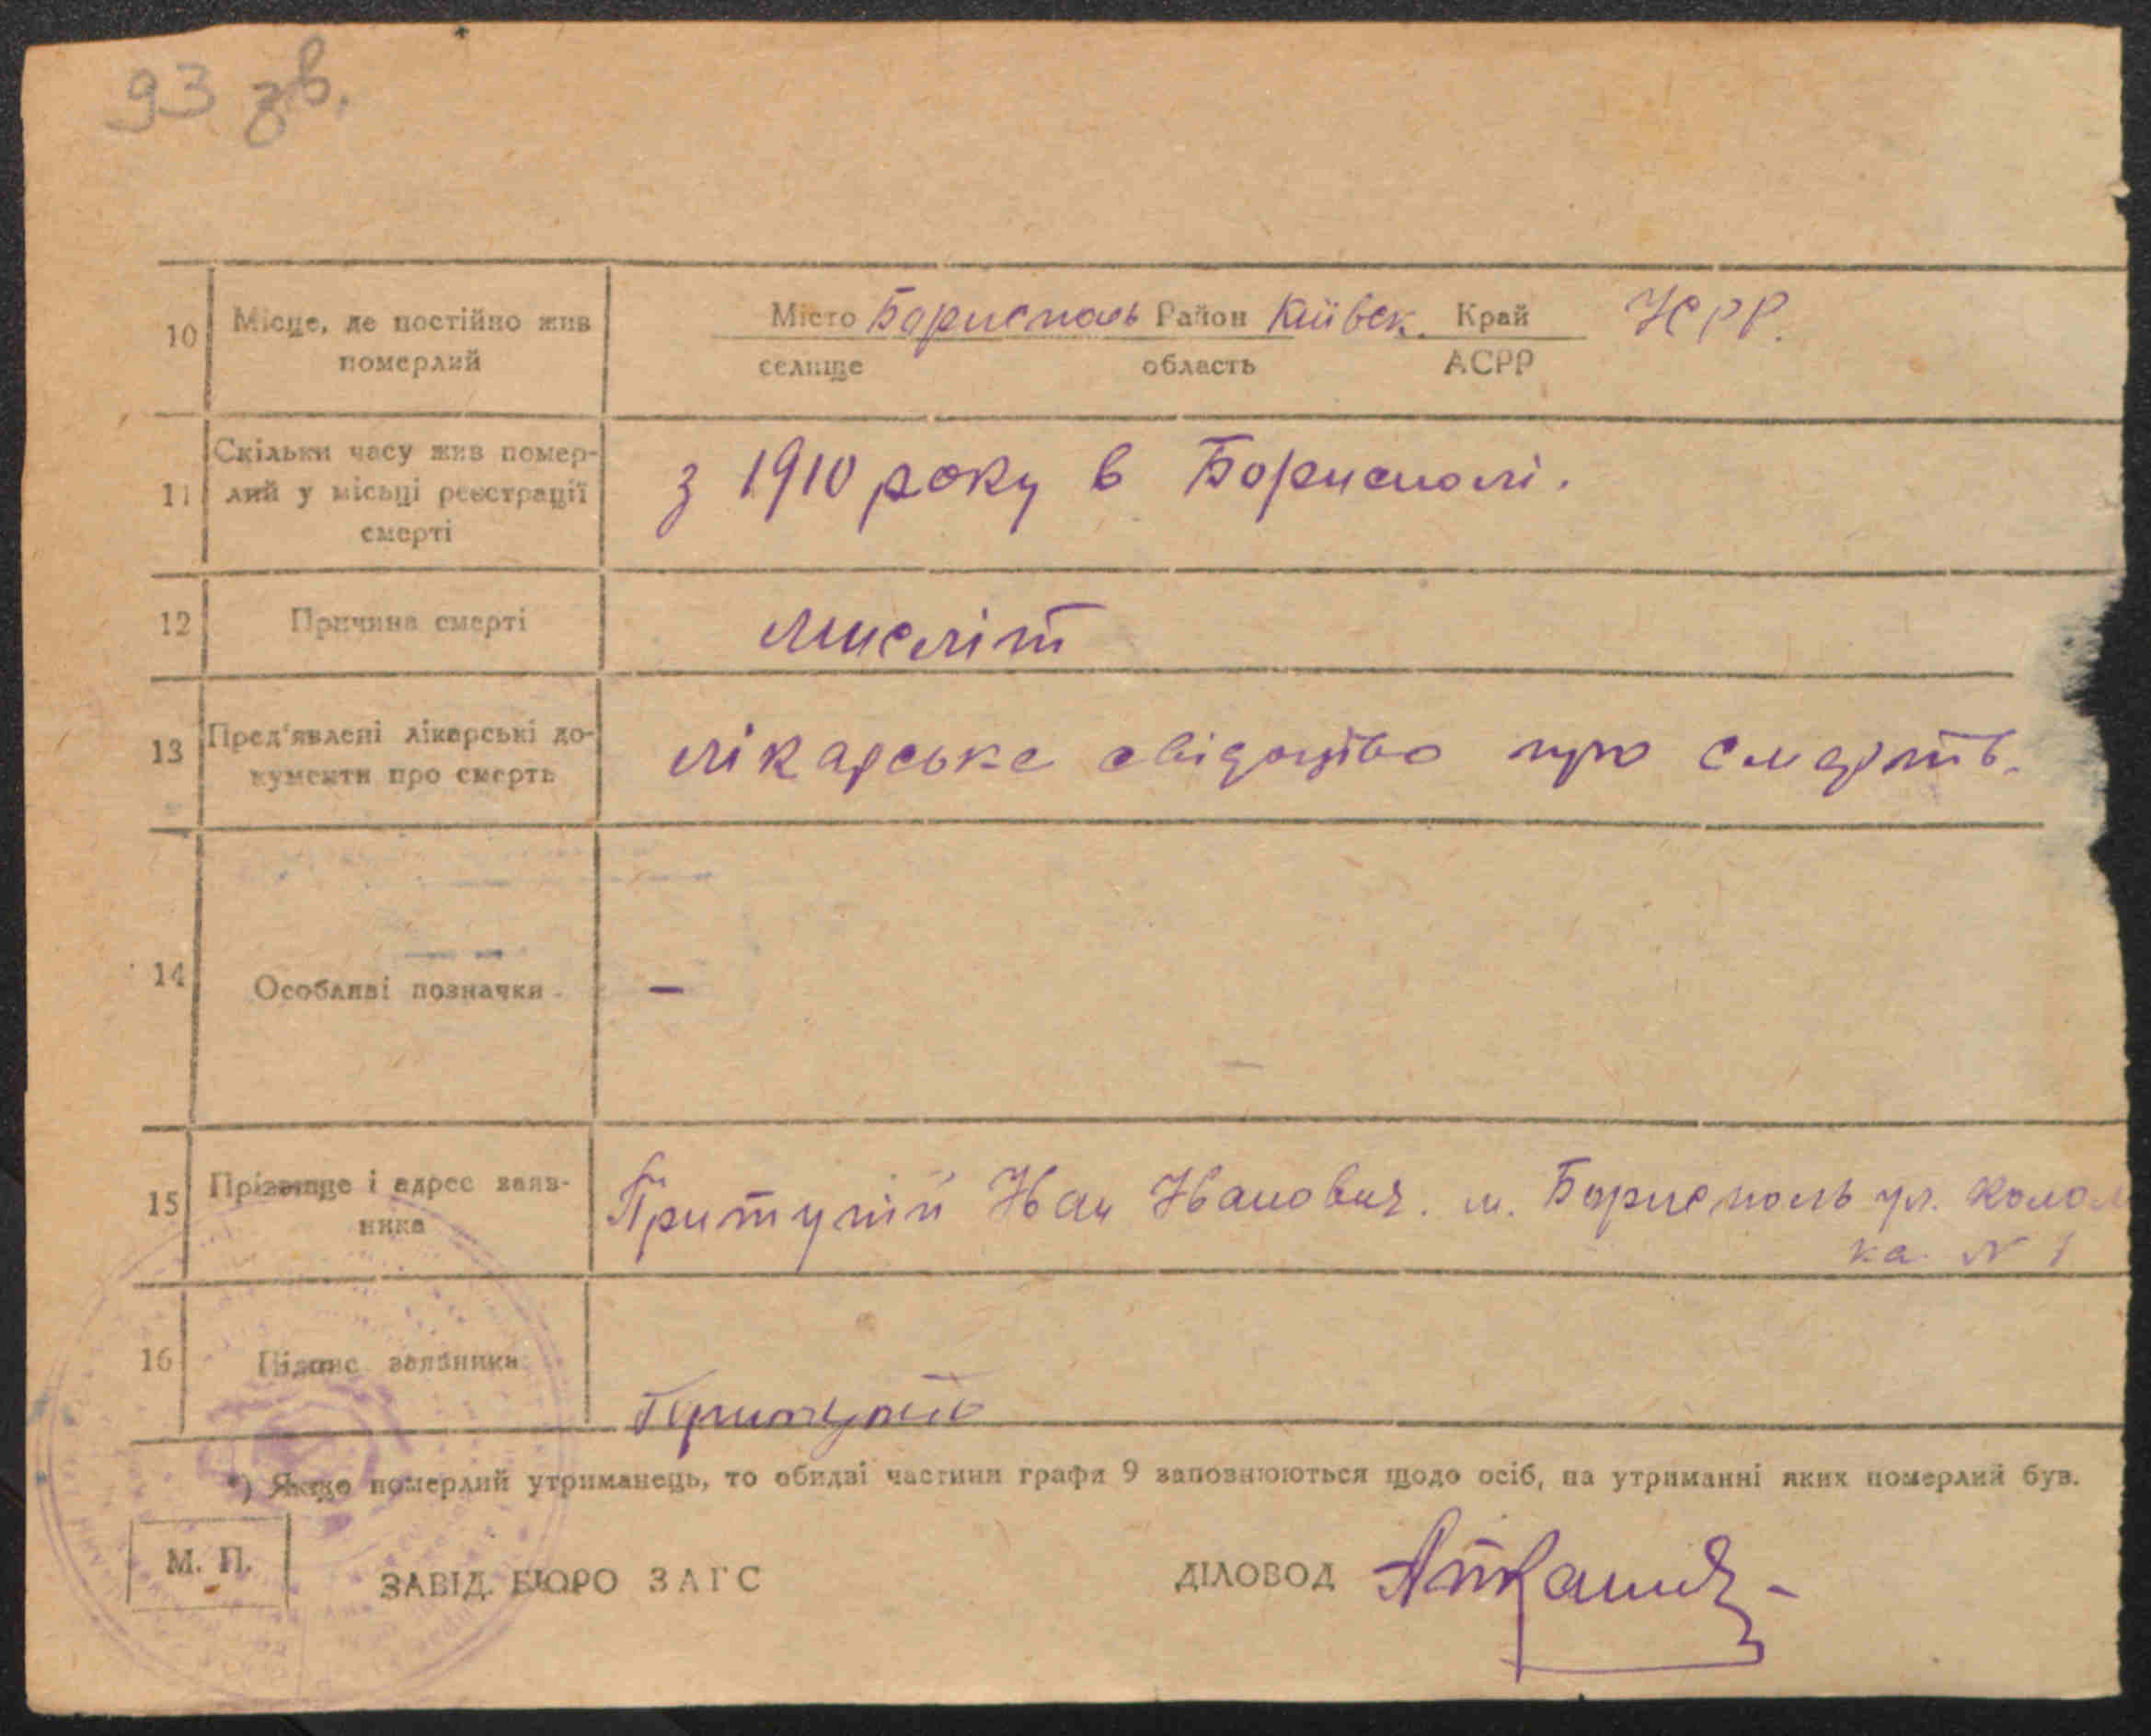 93 зв.
10 Місце, де постійно жив померлий
Місто Бориспіль Район Київск. Край УСРР.
селище область АСРР
11 Скільки часу жив помер-
лий у місьці реєстрації
смерті
з 1910 року в Борисполі.
12 Причина смерті
мієліт
13 Пред'явлені лікарські до-
кументи про смерть
лікарське свідоцтво про смерть.
14 Особливі позначки -
15 Прізвище і адрес заяв-
ника
Притулій Иван Иванович. м. Борисполь ул.
ка N 1
16 Підпис заявника
Притулій
*) Якщо померлий утриманець, то обидві частини графи 9 заповнюються щодо осіб, на утриманні яких померлий був.
М. П.
ЗАВІД. БЮРО ЗАГС ДІЛОВОД